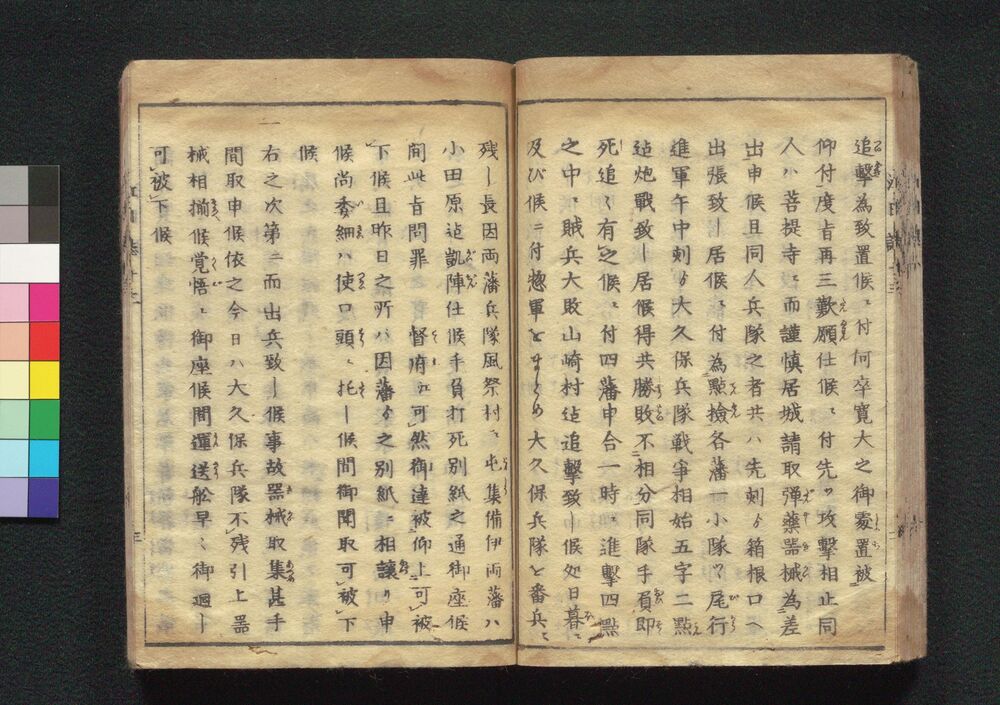 追擊為致置候ニ付何卒寛大之御處置被
仰付度㫖再三歎願仕候ニ付先ツ攻擊相止同
人ハ菩提寺ニ而謹慎居城請取彈藥器械為差
出申候且同人兵隊之者共ハ先刻ゟ箱根口ヘ
出張致シ居候ニ付為點撿各藩一小隊ツヽ尾行
進軍午中刻ゟ大久保兵隊戰爭相始五字二點
迠炮戰致シ居候得共勝敗不相分同隊手負即
死追々有之候ニ付四藩申合一時ニ進擊四點
之中ニ賊兵大敗山崎村迠追擊致シ候処日暮ニ
及び候ニ付惣軍をまとめ大久保兵隊を番兵ニ
残シ長因両藩兵隊風祭村ニ屯集備伊両藩ハ
小田原迠凱陣仕候手負打死別紙之通御座候
間此㫖問罪 督府ゟ可然御達被仰上可被
下候且昨日之所ハ因藩ゟ之別紙ニ相讓リ申
候尚委細ハ使口頭ニ托シ候間御聞取可被下
候
一
右之次第ニ而出兵致シ候事故器械取集甚手
間取申候依之今日ハ大久保兵隊不殘引上器
械相揃候覚悟ニ御座候間運送舩早々御廻シ
可被下候